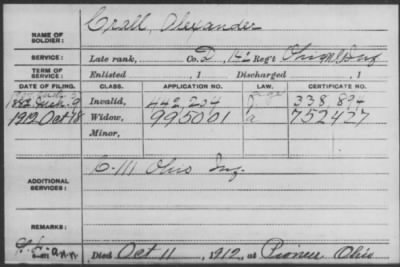 NAME OF SOLDIER: Crall, Alexander
SERVICE: Late rank, Co. D, 142 Reg't Ohio N.G. Inf
TERM OF SERVICE: Enlisted , 1 Discharged , 1
DATE OF FILING. CLASS. APPLICATION NO. LAW. CERTIFICATE NO.
1882 Mch 9 Invalid, 442,224 338,894
1912 Oct 18 Widow, 995001 a 752427
Minor,
ADDITIONAL SERVICES: C-111 Ohio Inf.
REMARKS:
Died Oct 11, 1912, at Pioneer Ohio